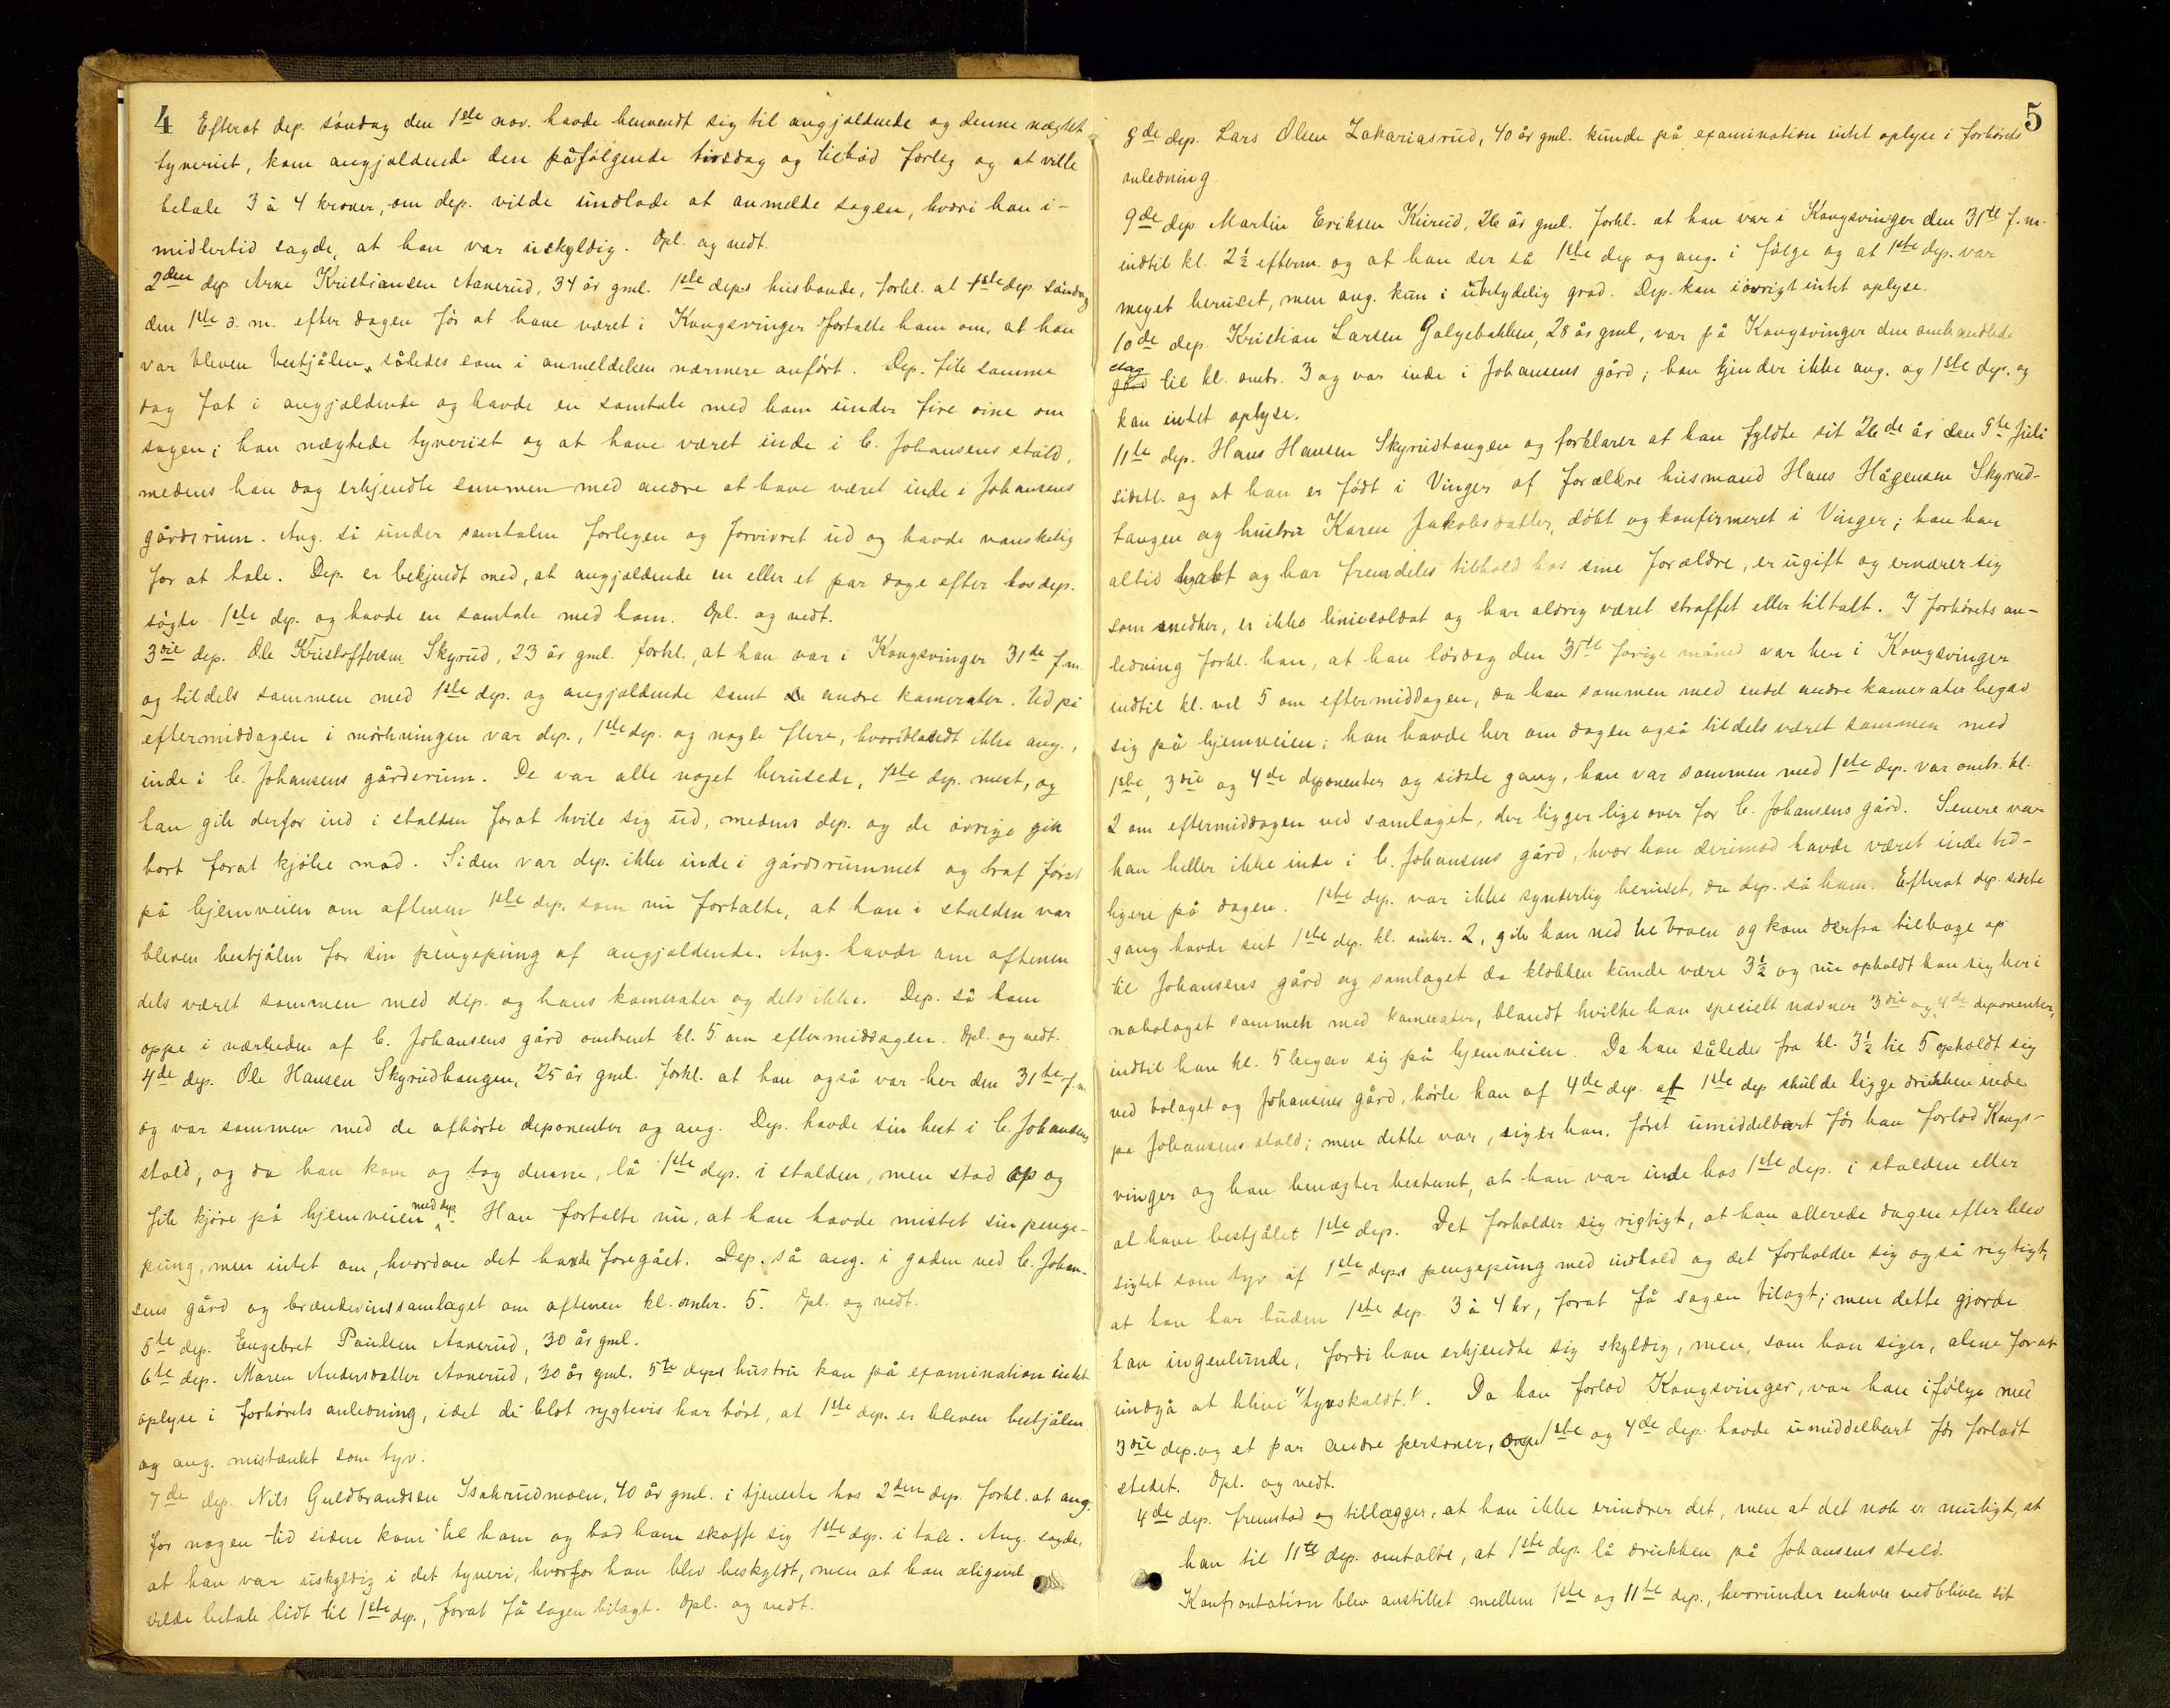 4
Efterat dep. söndag den 1ste nov. havde henvendt sig til angjældende og denne nægtet
tyveriet, kom angjældende den påfølgende tirsdag og tilbød forlig og at ville
betale 3 à 4 kroner, om dep. vilde undlade at anmelde sagen, hvori han i-
midlertid sagde, at han var uskyldig. Opl. og vedt.
2den dep Arne Kristiansen Aanerud, 34 år gml. 1ste deps husbonde, forkl. at 1ste dep. søndag
den 1ste d. m. efter dagen før at have været i Kongsvinger fortalte ham om, at han
var bleven bestjålen, således som i anmeldelsen nærmere anført. Dep. fik samme
dag fat i angjældende og havde en samtale med ham under fire öine om
sagen; han nægtede tyveriet og at have været inde i C. Johansens stald,
medens han dog erkjendte sammen med andre at have været inde i Johansens
gårdsrum. Ang. så under samtalen forlegen og forvirret ud og havde vanskelig
for at tale. Dep. er bekjendt med, at angjældende en eller et par dage efter hos dep.
søgte 1ste dep. og havde en samtale med ham. Opl. og vedt.
3die dep. Ole Kristoffersen Skyrud, 23 år gml. forkl., at han var i Kongsvinger 31de f.m.
og tildels sammen med 1ste dep. og angjældende samt andre kamerater. Ud på
eftermiddagen i mørkningen var dep., 1ste dep. og nogle flere, hvoriblandt ikke ang.,
inde i C. Johansens gårdsrum. De var alle noget berusede, 1ste dep. mest, og
han gik derfor ind i stalden forat hvile sig ud, medens dep. og de øvrige gik
bort forat kjöbe mad. Siden var dep. ikke inde i gårdsrummet og traf först
på hjemveien om aftenen 1ste dep. som nu fortalte, at han i stalden var
bleven bestjålen for sin pengepung af angjældende. Ang. havde om aftenen
dels været sammen med dep. og hans kamerater og dels ikke. Dep. så ham
oppe i nærheden af C. Johansens gård omtrent kl. 5 om eftermiddagen. Opl. og vedt.
4de dep. Ole Hansen Skyrudhaugen, 25 år gml. forkl. at han også var her den 31te f.m.
og var sammen med de afhørte deponenter og ang. Dep. havde sin hest i C. Johansens
stald, og da han kom og tog denne, lå 1ste dep. i stalden, men stod op og
fik kjøre på hjemveien med dep. Han fortalte nu, at han havde mistet sin penge-
pung, men intet om, hvordan det havde foregået. Dep. så ang. i gaden ved C. Johan-
sens gård og brændevinssamlaget om aftenen kl. omtr. 5. Opl. og vedt.
5te dep. Engebret Paulsen Aanerud, 30 år gml.
6te dep. Maren Andersdatter Aanerud, 30 år gml. 5te deps hustru kan på examination intet
oplyse i forhørets anledning, idet de blot rygtevis har hørt, at 1ste dep. er bleven bestjålen
og ang. mistænkt som tyv.
7de dep. Nils Guldbrandsen Isakrudmoen, 40 år gml. i tjeneste hos 2den dep. forkl. at ang.
for nogen tid siden kom til ham og bad ham skaffe sig 1ste dep. i tale. Ang. sagde,
at han var uskyldig i det tyveri, hvorfor han blev beskyldt, men at han aligevel
vilde betale lidt til 1ste dep., forat få sagen bilagt. Opl. og vedt.
5
8de dep. Lars Olsen Zakariasrud, 40 år gml. kunde på examination intet oplyse i forhørets
anledning
9de dep Martin Eriksen Kurud, 26 år gml. forkl. at han var i Kongsvinger den 31te f.m.
indtil kl. 2½ efterm. og at han der så 1ste dep og ang. i følge og at 1ste dep. var
meget beruset, men ang. kun i ubetydelig grad. Dep. kan iøvrigt intet oplyse.
10de dep. Kristian Larsen Galgebakken, 28 år gml, var på Kongsvinger den omhandlede
dag til kl. omtr. 3 og var inde i Johansens gård; han kjender ikke ang. og 1ste dep. og
kan intet oplyse.
11te dep. Hans Hansen Skyrudtangen og forklarer at han fyldte sit 26de år den 9te Juli
sidstl. og at han er født i Vinger af forældre husmand Hans Hågensen Skyrud-
tangen og hustru Karen Jakobsdatter, döbt og konfirmeret i Vinger; han har
altid havt og har fremdeles tilhold hos sine forældre, er ugift og ernærer sig
som snedker, er ikke liniesoldat og har aldrig været straffet eller tiltalt. I forhørets an-
ledning forkl. han, at han lördag den 31te forrige måned var her i Kongsvinger
indtil kl. vel 5 om eftermiddagen, da han sammen med endel andre kamerater begav
sig på hjemveien; han havde her om dagen også tildels været sammen med
1ste, 3die og 4de deponenter og sidste gang, han var sammen med 1ste dep. var omtr. kl.
2 om eftermiddagen ved samlaget, der ligger lige over for C. Johansens gård. Senere var
han heller ikke inde i C. Johansens gård, hvor han derimod havde været inde tid-
ligere på dagen. 1ste dep. var ikke synderlig beruset, da dep. så ham. Efterat dep. sidste
gang havde seet 1ste dep. kl. omtr. 2, gik han ned til broen og kom derfra tilbage op
til Johansens gård og samlaget da klokken kunde være 3½ og nu opholdt han sig her i
nabolaget sammen med kamerater, blandt hvilke han specielt nævner 3die og 4de deponenter,
indtil han kl. 5 begav sig på hjemveien. Da han således fra kl. 3½ til 5 opholdt sig
ved bolaget og Johansens gård, hørte han af 4de dep. at 1ste dep skulde ligge drukken inde
på Johansens stald; men dette var, siger han, først umiddelbart før han forlod Kongs-
vinger og han benægter bestemt, at han var inde hos 1ste dep. i stalden eller
at have bestjålet 1ste dep. Det forholder sig rigtigt, at han allerede dagen efter blev
sigtet som tyv af 1ste deps pengepung med indhold og det forholder sig også rigtigt,
at han har buden 1ste dep. 3 à 4 kr, forat få sagen bilagt; men dette gjorde
han ingenlunde, fordi han erkjendte sig skyldig, men, som han siger, alene forat
undgå at blive "tyvskaldt.". Da han forlod Kongsvinger, var han ifølge med
3die dep. og et par andre personer, 1ste og 4de dep. havde umiddelbart før forladt
stedet. Opl. og vedt.
4de dep. fremstod og tillægger, at han ikke erindrer det, men at det nok er muligt, at
han til 11te dep. omtalte, at 1ste dep. lå drukken på Johansens stald.
Konfrontation blev anstillet mellem 1ste og 11te dep., hvorunder enhver vedbliver sit